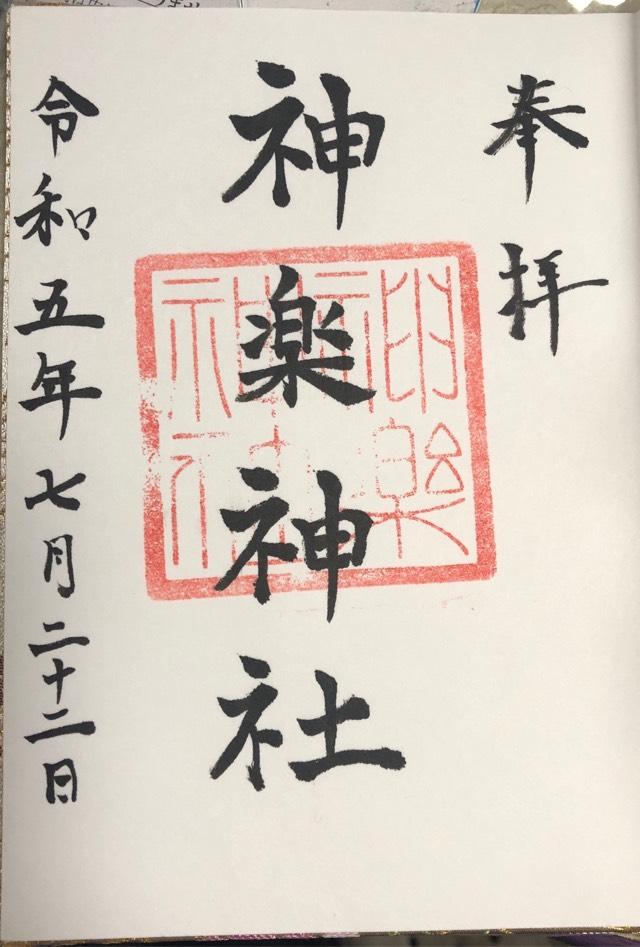 奉拝
神楽神社
令和五年七月二十二日